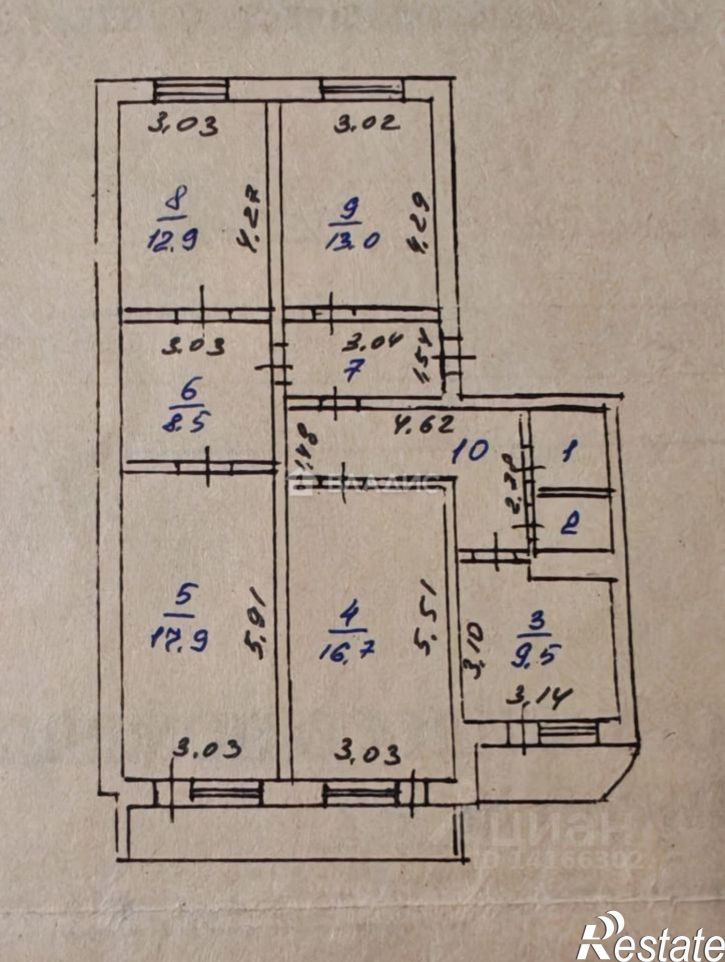 3.03
3.02
8
12.9
4.27
9
13.0
4.29
3.03
3.04
7
1.54
6
8.5
4.62
1.48
10
2.38
1
2
ВЛАДИС
5
17.9
5.91
4
16.7
5.51
3.10
3
9.5
3.14
3.03
3.03
циан
ID 14166302
Restate